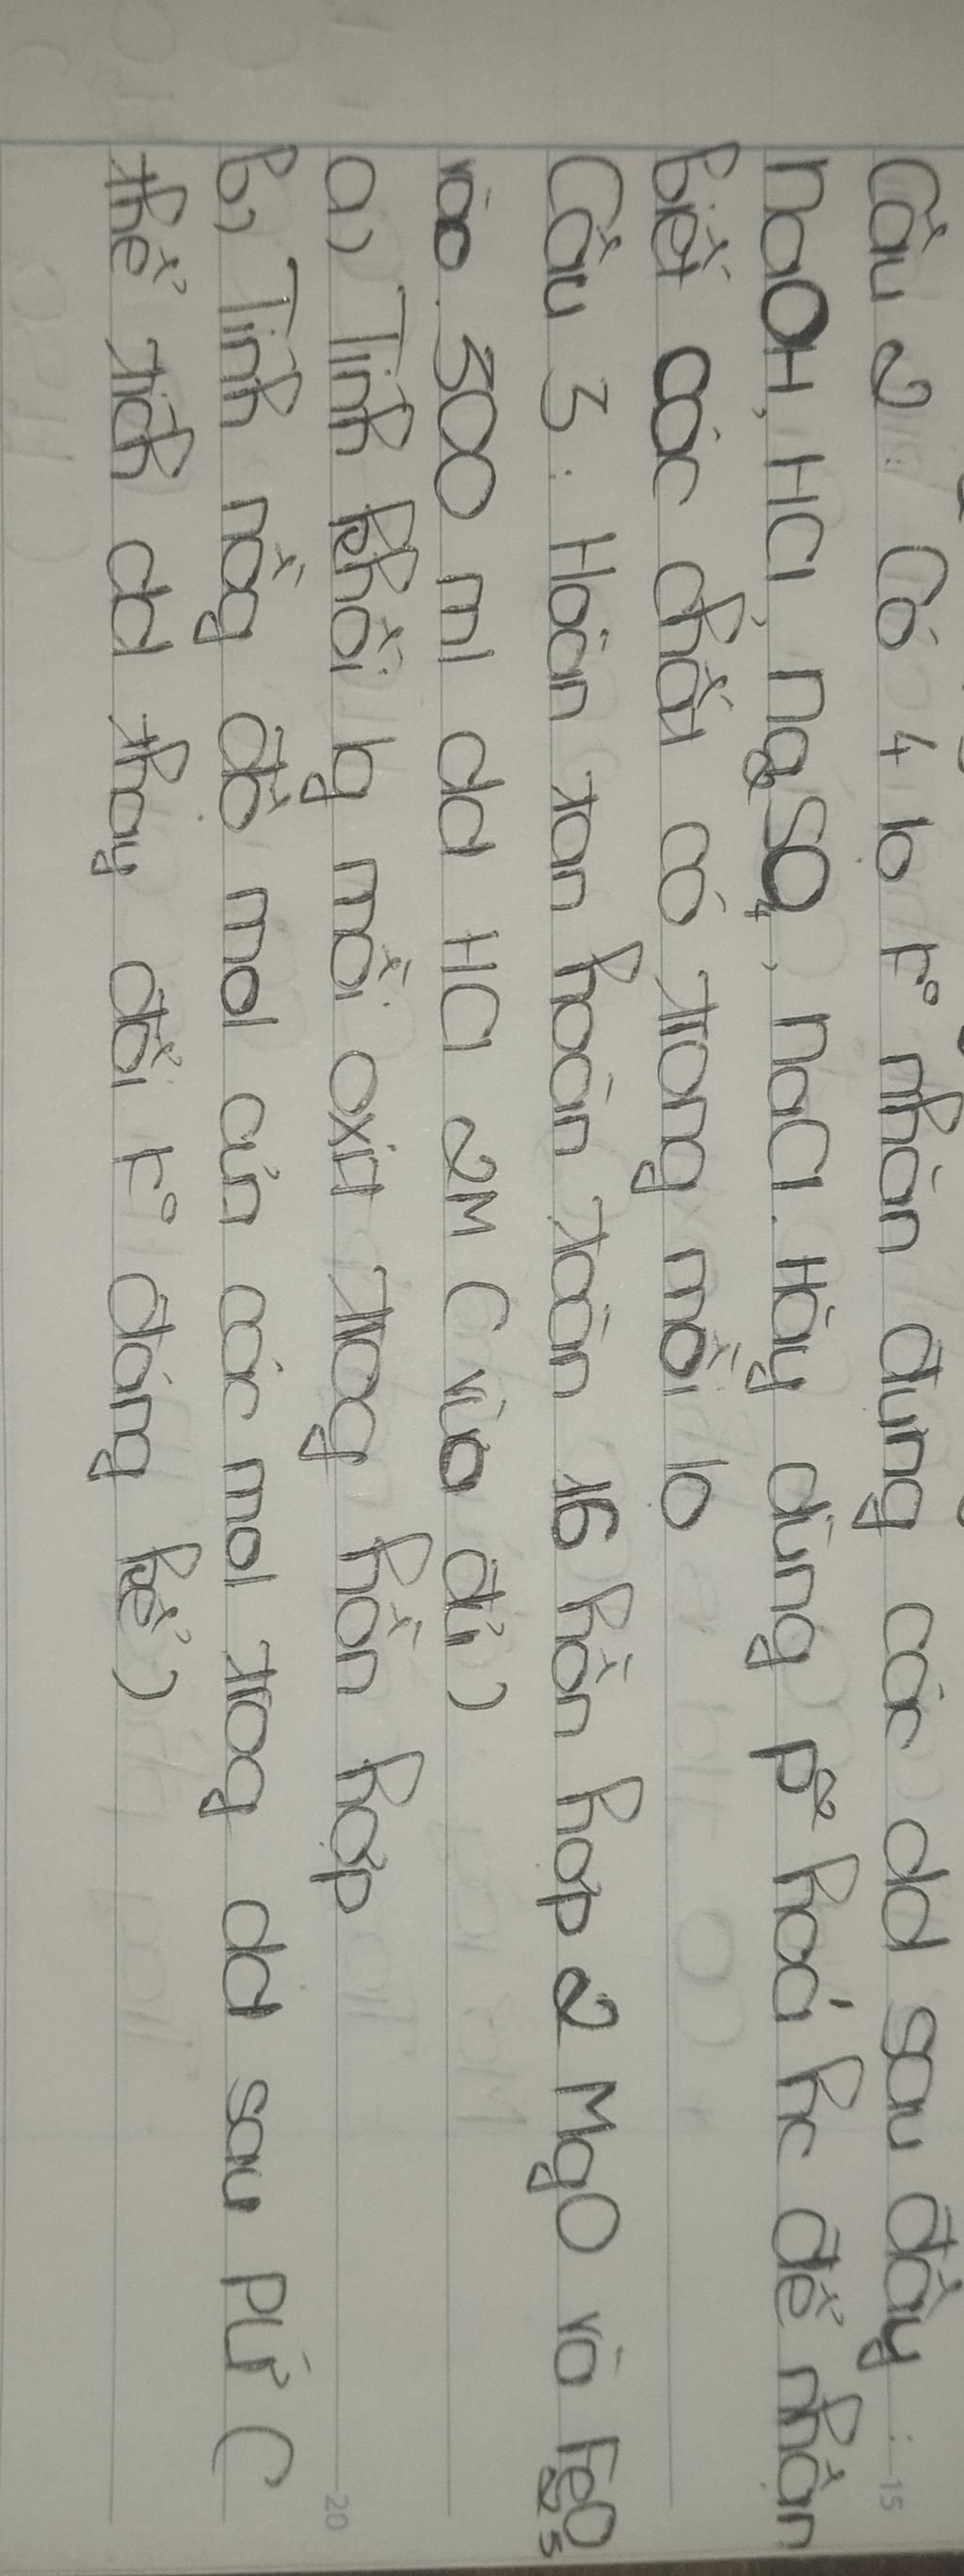 Câu 2 : Có 4 lo k° nhãn đựng các dd sau đây :
naOH, HCl, na2SO4, naCl. Hãy dùng p² hoá hc để nhận
biết các chất có trong mỗi lo
Câu 3 : Hoàn tan hoàn toàn 16 hỗn hợp 2 MgO và Fe2O3
vào 300 ml dd HCl 2M ( vừa đủ )
a) Tính khối lg mỗi oxit trog hỗn hợp
b) Tính nồg độ mol của các mol trog dd sau PƯ (
thể tích dd thay đổi k° đáng kể )